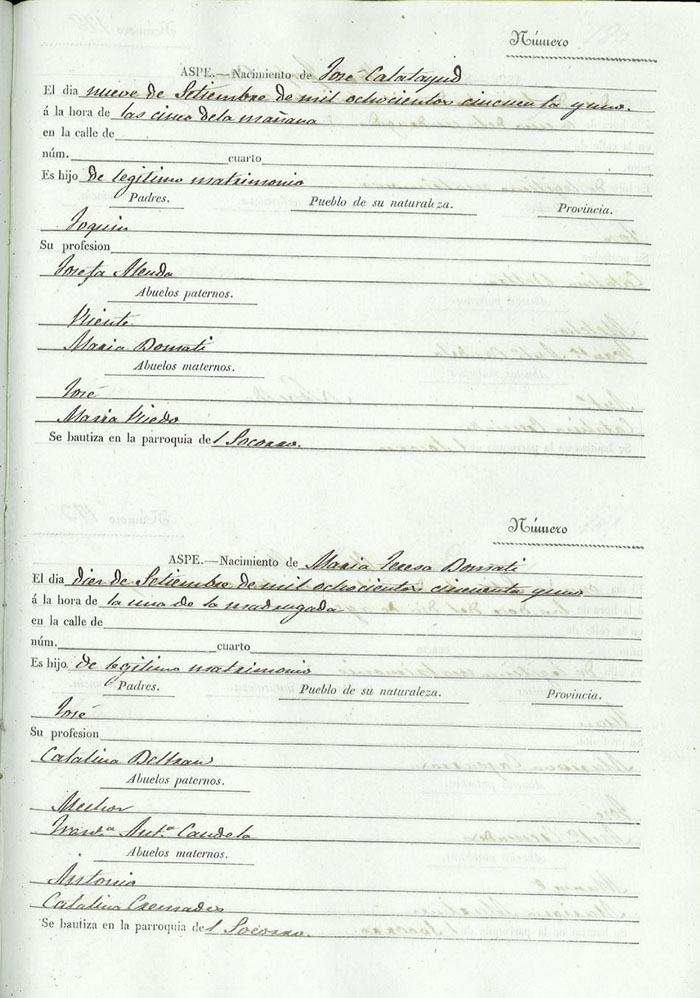 Número
ASPE.—Nacimiento de José Calatayud
El dia nueve de Setiembre de mil ochocientos cincuenta y uno.
á la hora de las cinco de la mañana
en la calle de
núm. cuarto
Es hijo de legitimo matrimonio
Padres. Pueblo de su naturaleza. Provincia.
Joquin
Su profesion
Josefa Alenda
Abuelos paternos.
Vicente
Maria Bonmati
Abuelos maternos.
José
Maria
Se bautiza en la parroquia del Socorro.
Número
ASPE.—Nacimiento de Maria Teresa Bonmati
El dia diez de Setiembre de mil ochocientos cincuenta y uno
á la hora de la una de la madrugada
en la calle de
núm. cuarto
Es hijo de legitimo matrimonio
Padres. Pueblo de su naturaleza. Provincia.
José
Su profesion
Catalina Beltran
Abuelos paternos.
Melchor
Ant.ª Candela
Abuelos maternos.
Antonio
Catalina Cremades
Se bautiza en la parroquia del Socorro.